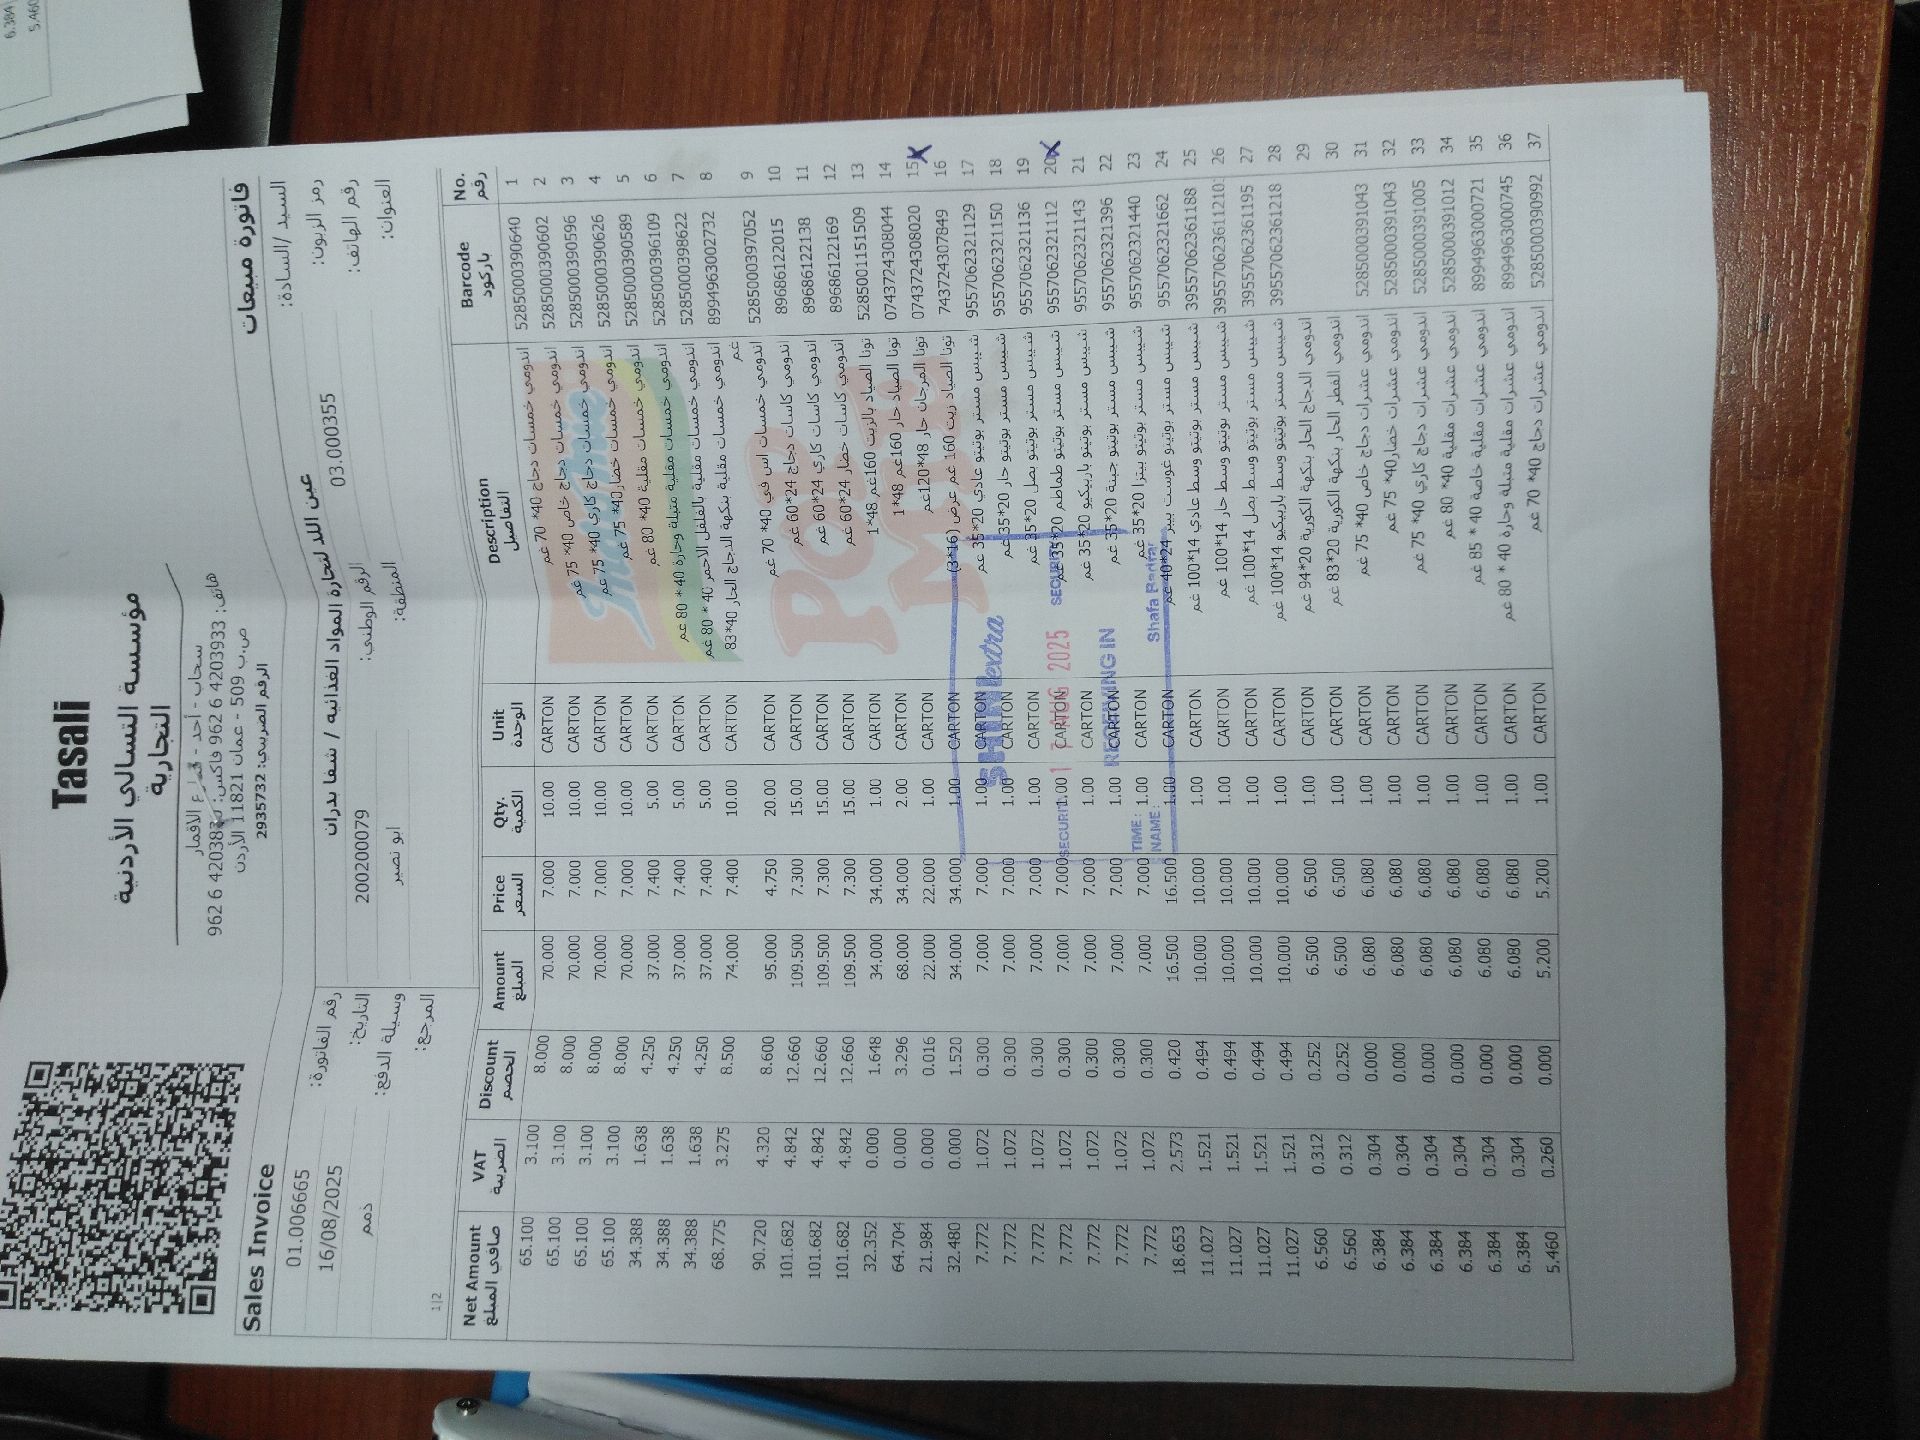 Tasali
مؤسسة التسالي الأردنية
التجارية
سحاب - أحد - شارع الاقمار
هاتف: 4203933 6 962 فاكس: 420383 6 962
ص.ب 509 - عمان 11821 الأردن
الرقم الضريبي: 2935732
Sales Invoice فاتورة مبيعات
01.006665 رقم الفاتورة:
16/08/2025 التاريخ:
ذمم وسيلة الدفع:
المرجع:
1|2
السيد /السادة: عين اللد لتجارة المواد الغذائيه / شفا بدران
رمز الزبون: 03.000355
رقم الهاتف: الرقم الوطني: 200200079
العنوان: المنطقة: ابو نصير
Net Amount VAT Discount Amount Price Qty. Unit Description Barcode No.
صافي المبلغ الضريبة الخصم المبلغ السعر الكمية الوحدة التفاصيل باركود رقم
65.100 3.100 8.000 70.000 7.000 10.00 CARTON اندومي خمسات دجاج 40* 70 غم 5285000390640 1
65.100 3.100 8.000 70.000 7.000 10.00 CARTON اندومي خمسات دجاج خاص 40* 75 غم 5285000390602 2
65.100 3.100 8.000 70.000 7.000 10.00 CARTON اندومي خمسات دجاج كاري 40* 75 غم 5285000390596 3
65.100 3.100 8.000 70.000 7.000 10.00 CARTON اندومي خمسات خضار40* 75 غم 5285000390626 4
34.388 1.638 4.250 37.000 7.400 5.00 CARTON اندومي خمسات مقلية 40* 80 غم 5285000390589 5
34.388 1.638 4.250 37.000 7.400 5.00 CARTON اندومي خمسات مقلية متبلة وحارة 40* 80 غم 5285000396109 6
34.388 1.638 4.250 37.000 7.400 5.00 CARTON اندومي خمسات مقلية بالفلفل الاحمر 40 * 80 غم 5285000398622 7
68.775 3.275 8.500 74.000 7.400 10.00 CARTON اندومي خمسات مقلية بنكهة الدجاج الحار 40*83 غم 8994963002732 8
90.720 4.320 8.600 95.000 4.750 20.00 CARTON اندومي خمسات اس في 40* 70 غم 5285000397052 9
101.682 4.842 12.660 109.500 7.300 15.00 CARTON اندومي كاسات دجاج 24*60 غم 89686122015 10
101.682 4.842 12.660 109.500 7.300 15.00 CARTON اندومي كاسات كاري 24*60 غم 89686122138 11
101.682 4.842 12.660 109.500 7.300 15.00 CARTON اندومي كاسات خضار 24*60 غم 89686122169 12
32.352 0.000 1.648 34.000 34.000 1.00 CARTON تونا الصياد بالزيت 160غم 48*1 5285001151509 13
64.704 0.000 3.296 68.000 34.000 2.00 CARTON تونا الصياد حار 160غم 48*1 074372430804​4 14
21.984 0.000 0.016 22.000 22.000 1.00 CARTON تونا المرجان حار 48*120غم 0743724308020 15
32.480 0.000 1.520 34.000 34.000 1.00 CARTON تونا الصياد زيت 160 غم عرض (16*3) 743724307849 16
7.772 1.072 0.300 7.000 7.000 1.00 CARTON شيبس مستر بوتيتو عادي 20*35 غم 9557062321129 17
7.772 1.072 0.300 7.000 7.000 1.00 CARTON شيبس مستر بوتيتو حار 20*35غم 9557062321150 18
7.772 1.072 0.300 7.000 7.000 1.00 CARTON شيبس مستر بوتيتو بصل 20*35 غم 9557062321136 19
7.772 1.072 0.300 7.000 7.000 1.00 CARTON شيبس مستر بوتيتو طماطم 20*35 غم 9557062321112 20
7.772 1.072 0.300 7.000 7.000 1.00 CARTON شيبس مستر بوتيتو باربيكيو 20*35 غم 9557062321143 21
7.772 1.072 0.300 7.000 7.000 1.00 CARTON شيبس مستر بوتيتو جبنة 20*35 غم 9557062321396 22
7.772 1.072 0.300 7.000 7.000 1.00 CARTON شيبس مستر بوتيتو بيتزا 20*35 غم 9557062321440 23
18.653 2.573 0.420 16.500 16.500 1.00 CARTON شيبس مستر بوتيتو غوست بيبر 24*40 غم 9557062321662 24
11.027 1.521 0.494 10.000 10.000 1.00 CARTON شيبس مستر بوتيتو وسط عادي 14*100 غم 3955706236​1188 25
11.027 1.521 0.494 10.000 10.000 1.00 CARTON شيبس مستر بوتيتو وسط حار 14*100 غم 26
11.027 1.521 0.494 10.000 10.000 1.00 CARTON شيبس مستر بوتيتو وسط بصل 14*100 غم 39557062361195 27
11.027 1.521 0.494 10.000 10.000 1.00 CARTON شيبس مستر بوتيتو وسط باربيكيو 14*100 غم 39557062361218 28
6.560 0.312 0.252 6.500 6.500 1.00 CARTON اندومي الدجاج الحار بنكهة الكورية 20*94 غم 29
6.560 0.312 0.252 6.500 6.500 1.00 CARTON اندومي الفطر الحار بنكهة الكورية 20*83 غم 30
6.384 0.304 0.000 6.080 6.080 1.00 CARTON اندومي عشرات دجاج خاص 40* 75 غم 5285000391043 31
6.384 0.304 0.000 6.080 6.080 1.00 CARTON اندومي عشرات خضار40* 75 غم 5285000391043 32
6.384 0.304 0.000 6.080 6.080 1.00 CARTON اندومي عشرات دجاج كاري 40* 75 غم 5285000391005 33
6.384 0.304 0.000 6.080 6.080 1.00 CARTON اندومي عشرات مقلية 40* 80 غم 5285000391012 34
6.384 0.304 0.000 6.080 6.080 1.00 CARTON اندومي عشرات مقلية خاصة 40 * 85 غم 8994963000721 35
6.384 0.304 0.000 6.080 6.080 1.00 CARTON اندومي عشرات مقلية متبلة وحارة 40 * 80 غم 8994963000745 36
5.460 0.260 0.000 5.200 5.200 1.00 CARTON اندومي عشرات دجاج 40* 70 غم 5285000390992 37
extra
SECURITY 17 AUG 2025 SECURITY
RECEIVING IN
TIME:
NAME: Shafa Badran
Indomie
POP
6.384
5.460